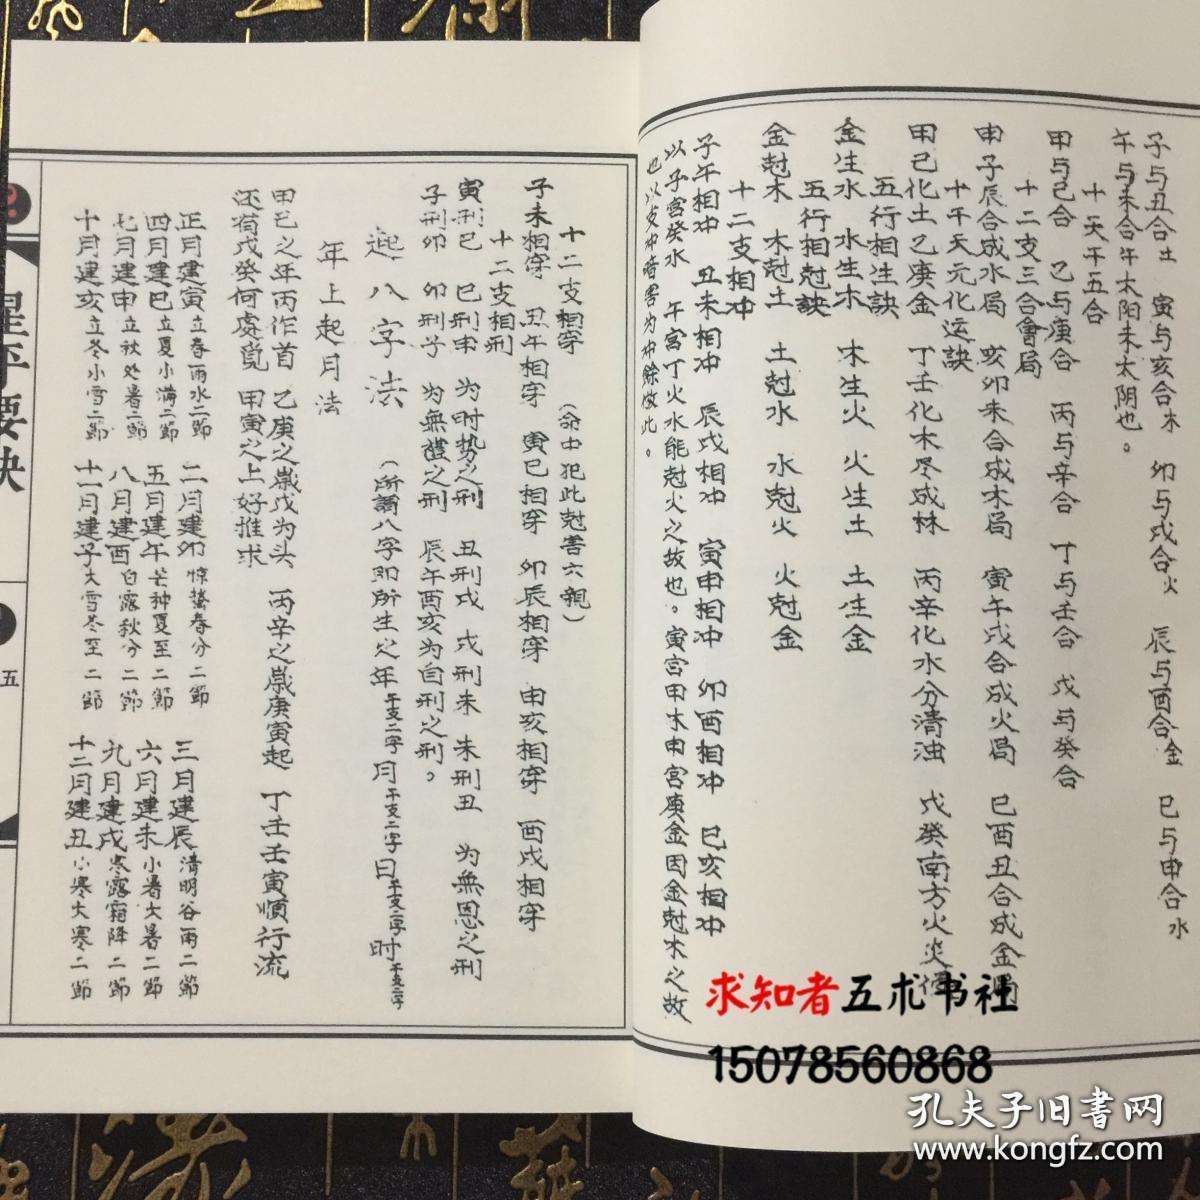 子与丑合土 寅与亥合木 卯与戌合火 辰与酉合金 巳与申合水
午与未合午太阳未太阴也。
十天干五合
甲与己合 乙与庚合 丙与辛合 丁与壬合 戊与癸合
十二支三合會局
申子辰合成水局 亥卯未合成木局 寅午戌合成火局 巳酉丑合成金局
十干天元化运訣
甲己化土乙庚金 丁壬化木尽成林 丙辛化水分清浊 戊癸南方火炎
五行相生訣
金生水 水生木 木生火 火生土 土生金
五行相尅訣
金尅木 木尅土 土尅水 水尅火 火尅金
十二支相冲
子午相冲 丑未相冲 辰戌相冲 寅申相冲 卯酉相冲 巳亥相冲
以子宫癸水 午宫丁火水能尅火之故也。寅宫甲木申宫庚金因金尅木之故
也以支冲暗害为冲餘倣此。
十二支相穿 (命中犯此尅害六親)
子未相穿 丑午相穿 寅巳相穿 卯辰相穿 申亥相穿 酉戌相穿
十二支相刑
寅刑巳 巳刑申 为时势之刑 丑刑戌 戌刑未 未刑丑 为無恩之刑
子刑卯 卯刑子 为無禮之刑 辰午酉亥为自刑之刑。
起八字法 (所謂八字即所生之年干支二字月干支二字日干支二字时干支二字
年上起月法
甲巳之年丙作首 乙庚之歲戊为头 丙辛之歲庚寅起 丁壬壬寅順行流
还有戊癸何處覓 甲寅之上好推求
正月建寅立春雨水二節 二月建卯惊蟄春分二節 三月建辰清明谷雨二節
四月建巳立夏小满二節 五月建午芒种夏至二節 六月建未小暑大暑二節
七月建申立秋处暑二節 八月建酉白露秋分二節 九月建戌寒露霜降二節
十月建亥立冬小雪二節 十一月建子大雪冬至二節 十二月建丑小寒大寒二節
星平要訣
五
求知者五术书社
15078560868
孔夫子旧書网
www.kongfz.com